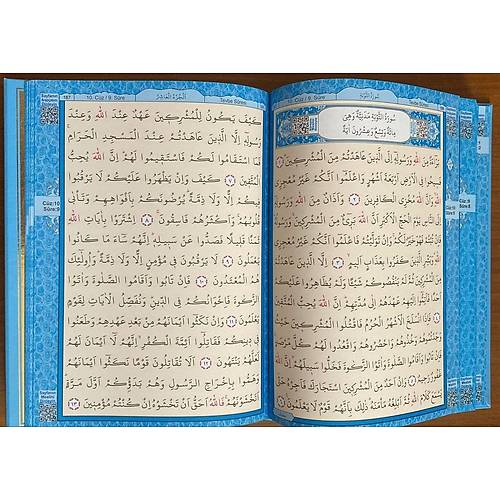 سُورَةُ التَّوْبَةِ
10. Cüz / 9. Sûre
سُورَةُ التَّوْبَةِ مَدَنِيَّةٌ وَهِيَ
مِائَةٌ وَتِسْعٌ وَعِشْرُونَ آيَةً
بَرَاءَةٌ مِنَ اللّٰهِ وَرَسُولِهِ إِلَى الَّذِينَ عَاهَدْتُمْ مِنَ الْمُشْرِكِينَ ﴿١﴾
فَسِيحُوا فِي الْأَرْضِ أَرْبَعَةَ أَشْهُرٍ وَاعْلَمُوا أَنَّكُمْ غَيْرُ مُعْجِزِي
اللّٰهِ وَأَنَّ اللّٰهَ مُخْزِي الْكَافِرِينَ ﴿٢﴾ وَأَذَانٌ مِنَ اللّٰهِ وَرَسُولِهِ
إِلَى النَّاسِ يَوْمَ الْحَجِّ الْأَكْبَرِ أَنَّ اللّٰهَ بَرِيءٌ مِنَ الْمُشْرِكِينَ وَرَسُولُهُ
فَإِنْ تُبْتُمْ فَهُوَ خَيْرٌ لَكُمْ وَإِنْ تَوَلَّيْتُمْ فَاعْلَمُوا أَنَّكُمْ غَيْرُ مُعْجِزِي
اللّٰهِ وَبَشِّرِ الَّذِينَ كَفَرُوا بِعَذَابٍ أَلِيمٍ ﴿٣﴾ إِلَّا الَّذِينَ عَاهَدْتُمْ مِنَ
الْمُشْرِكِينَ ثُمَّ لَمْ يَنْقُصُوكُمْ شَيْئًا وَلَمْ يُظَاهِرُوا عَلَيْكُمْ
أَحَدًا فَأَتِمُّوا إِلَيْهِمْ عَهْدَهُمْ إِلَى مُدَّتِهِمْ إِنَّ اللّٰهَ يُحِبُّ الْمُتَّقِينَ
﴿٤﴾ فَإِذَا انْسَلَخَ الْأَشْهُرُ الْحُرُمُ فَاقْتُلُوا الْمُشْرِكِينَ حَيْثُ
وَجَدْتُمُوهُمْ وَخُذُوهُمْ وَاحْصُرُوهُمْ وَاقْعُدُوا لَهُمْ كُلَّ مَرْصَدٍ
فَإِنْ تَابُوا وَأَقَامُوا الصَّلٰوةَ وَآتَوُا الزَّكٰوةَ فَخَلُّوا سَبِيلَهُمْ إِنَّ اللّٰهَ
غَفُورٌ رَحِيمٌ ﴿٥﴾ وَإِنْ أَحَدٌ مِنَ الْمُشْرِكِينَ اسْتَجَارَكَ فَأَجِرْهُ حَتَّى
يَسْمَعَ كَلَامَ اللّٰهِ ثُمَّ أَبْلِغْهُ مَأْمَنَهُ ذٰلِكَ بِأَنَّهُمْ قَوْمٌ لَا يَعْلَمُونَ ﴿٦﴾
Cüz:9
Sûre:8
187
10. Cüz / 9. Sûre
اَلْجُزْءُ الْعَاشِرُ
Tevbe Sûresi
كَيْفَ يَكُونُ لِلْمُشْرِكِينَ عَهْدٌ عِنْدَ اللّٰهِ وَعِنْدَ
رَسُولِهِ إِلَّا الَّذِينَ عَاهَدْتُمْ عِنْدَ الْمَسْجِدِ الْحَرَامِ
فَمَا اسْتَقَامُوا لَكُمْ فَاسْتَقِيمُوا لَهُمْ إِنَّ اللّٰهَ يُحِبُّ
الْمُتَّقِينَ ﴿٧﴾ كَيْفَ وَإِنْ يَظْهَرُوا عَلَيْكُمْ لَا يَرْقُبُوا
فِيكُمْ إِلًّا وَلَا ذِمَّةً يُرْضُونَكُمْ بِأَفْوَاهِهِمْ وَتَأْبَى
قُلُوبُهُمْ وَأَكْثَرُهُمْ فَاسِقُونَ ﴿٨﴾ اِشْتَرَوْا بِآيَاتِ اللّٰهِ
ثَمَنًا قَلِيلًا فَصَدُّوا عَنْ سَبِيلِهِ إِنَّهُمْ سَاءَ مَا كَانُوا
يَعْمَلُونَ ﴿٩﴾ لَا يَرْقُبُونَ فِي مُؤْمِنٍ إِلًّا وَلَا ذِمَّةً وَأُولٰئِكَ
هُمُ الْمُعْتَدُونَ ﴿١٠﴾ فَإِنْ تَابُوا وَأَقَامُوا الصَّلٰوةَ وَآتَوُا
الزَّكٰوةَ فَإِخْوَانُكُمْ فِي الدِّينِ وَنُفَصِّلُ الْآيَاتِ لِقَوْمٍ
يَعْلَمُونَ ﴿١١﴾ وَإِنْ نَكَثُوا أَيْمَانَهُمْ مِنْ بَعْدِ عَهْدِهِمْ وَطَعَنُوا
فِي دِينِكُمْ فَقَاتِلُوا أَئِمَّةَ الْكُفْرِ إِنَّهُمْ لَا أَيْمَانَ لَهُمْ
لَعَلَّهُمْ يَنْتَهُونَ ﴿١٢﴾ أَلَا تُقَاتِلُونَ قَوْمًا نَكَثُوا أَيْمَانَهُمْ
وَهَمُّوا بِإِخْرَاجِ الرَّسُولِ وَهُمْ بَدَؤُكُمْ أَوَّلَ مَرَّةٍ
أَتَخْشَوْنَهُمْ فَاللّٰهُ أَحَقُّ أَنْ تَخْشَوْهُ إِنْ كُنْتُمْ مُؤْمِنِينَ ﴿١٣﴾
Cüz:10
Sûre:9